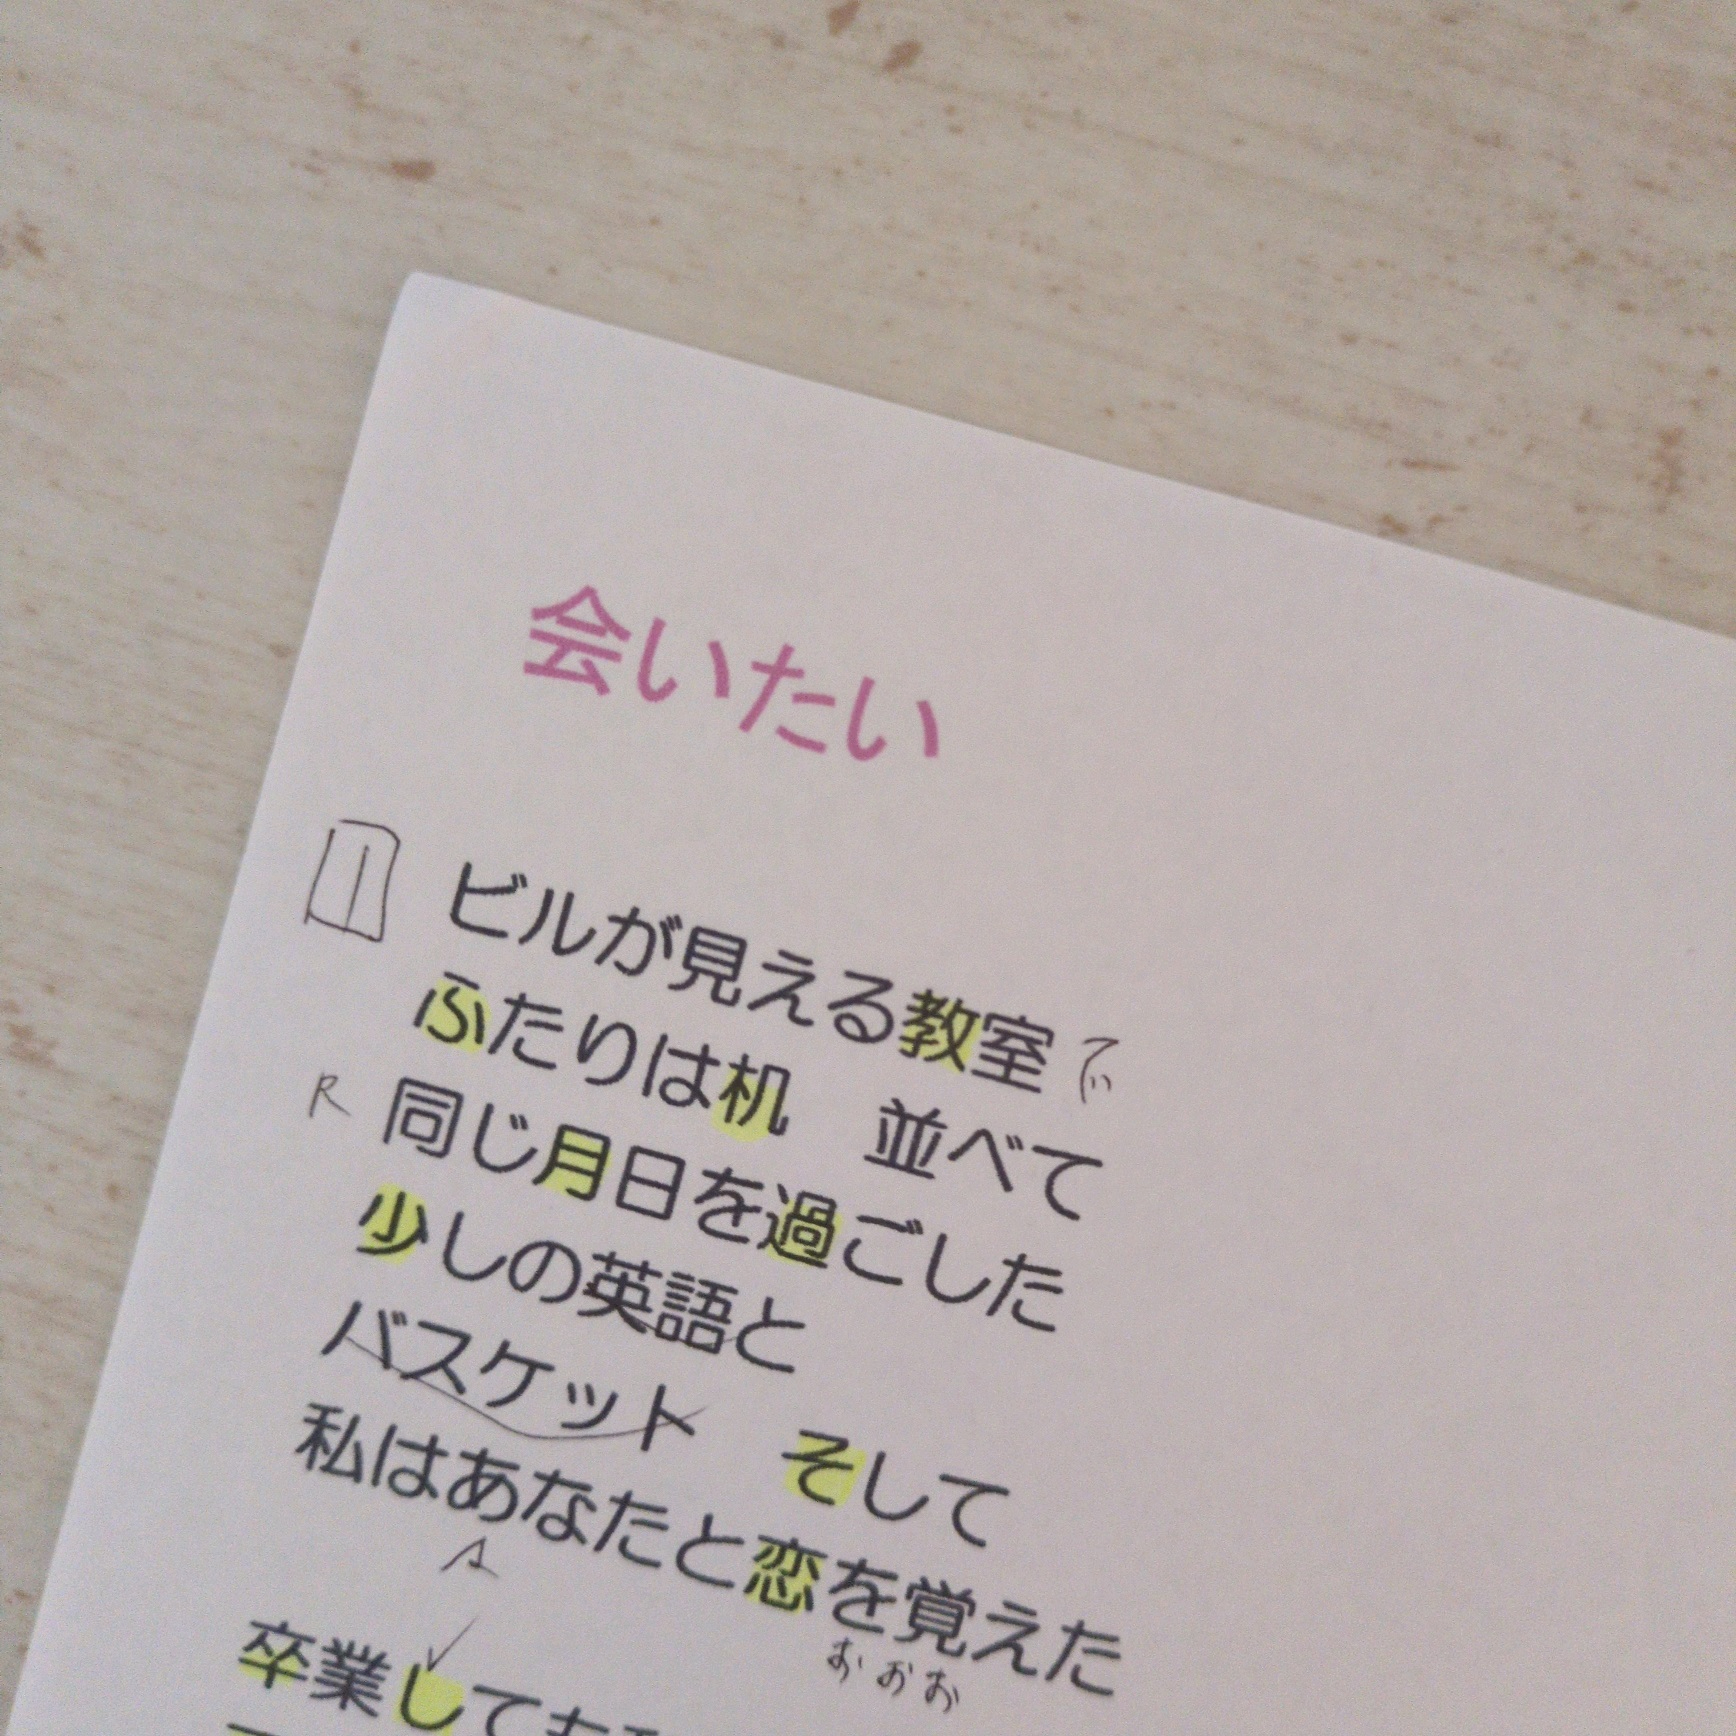 会いたい
1 ビルが見える教室 で
ふたりは机 並べて
R 同じ月日を過ごした
少しの英語と
バスケット そして
私はあなたと恋を覚えた
A
おおお
卒業しても